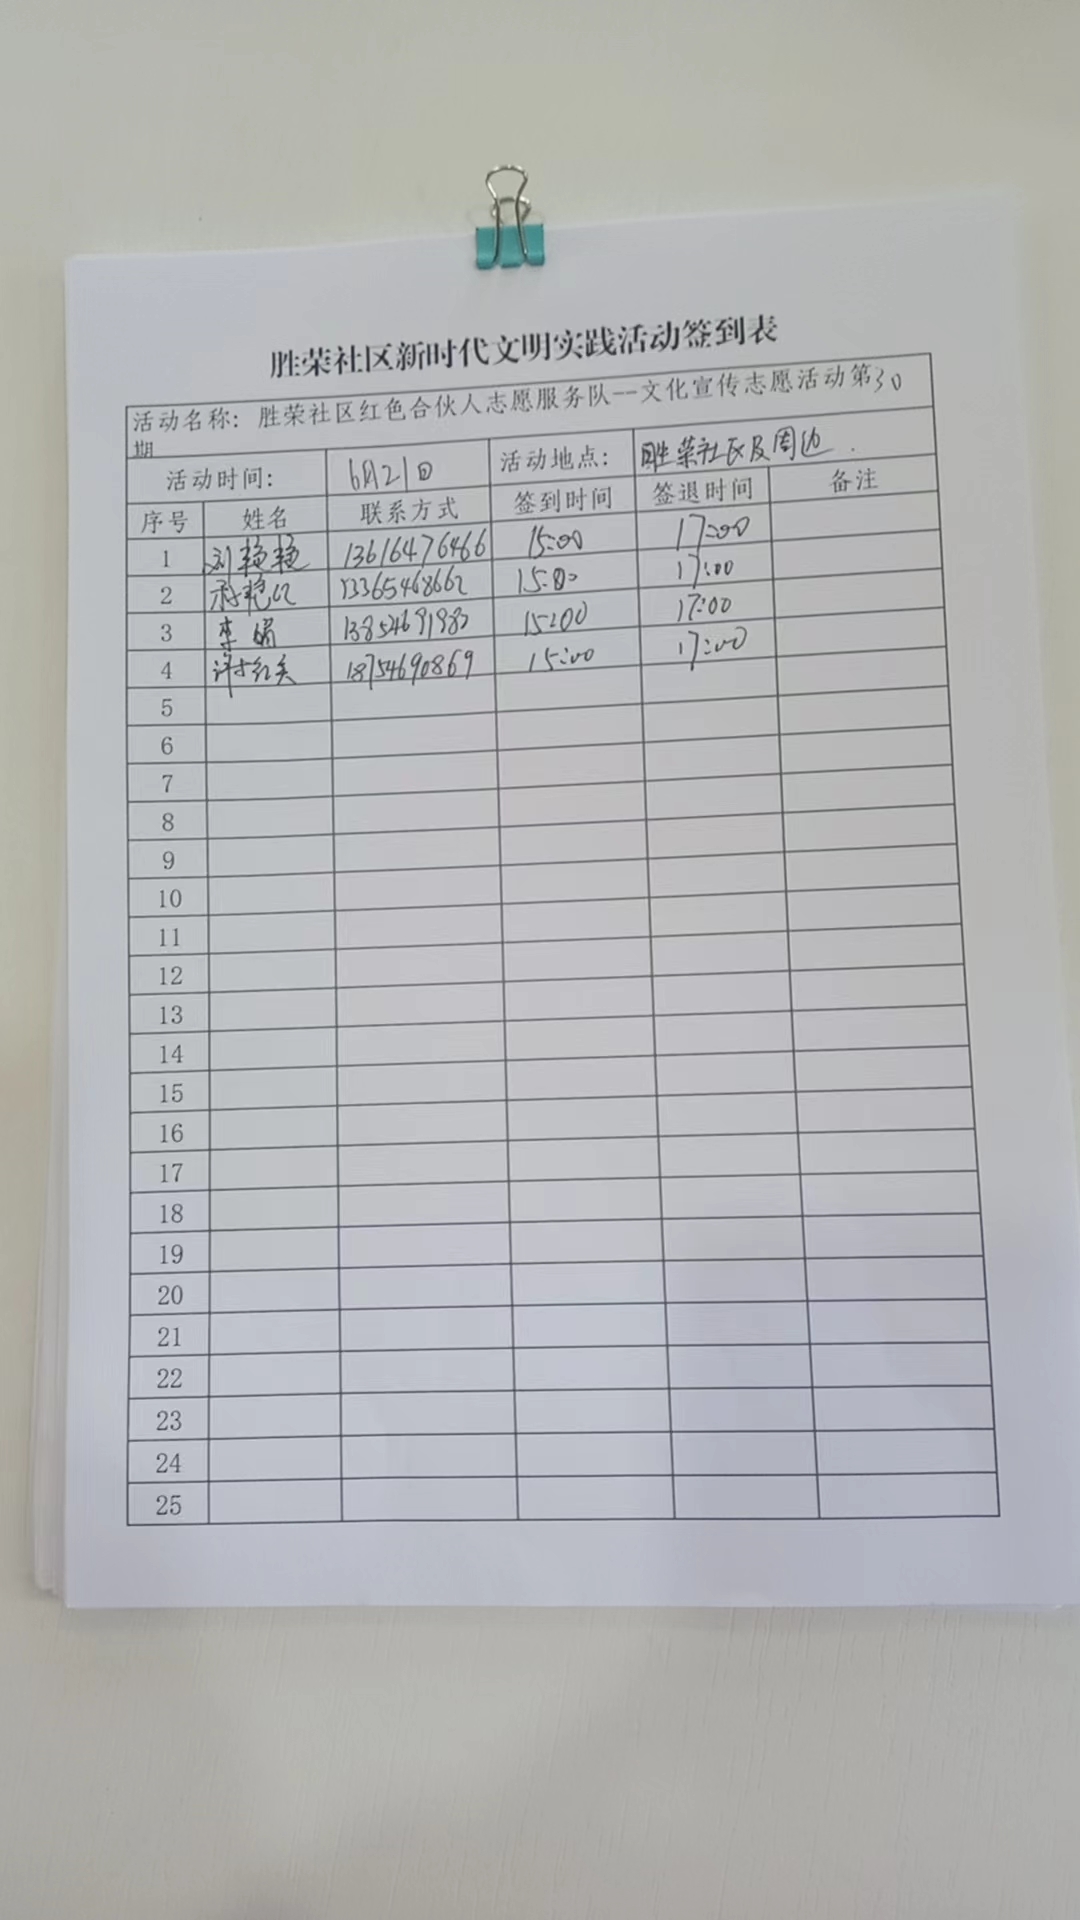 胜荣社区新时代文明实践活动签到表
活动名称: 胜荣社区红色合伙人志愿服务队--文化宣传志愿活动第30
期
活动时间: 6月21日 活动地点: 胜荣社区及周边.
序号 姓名 联系方式 签到时间 签退时间 备注
1 刘艳艳 13616476466 15:00 17:00
2 艳红 13365468662 15:00 17:00
3 李娟 13854691983 15:00 17:00
4 许红 18754690869 15:00 17:00
5
6
7
8
9
10
11
12
13
14
15
16
17
18
19
20
21
22
23
24
25